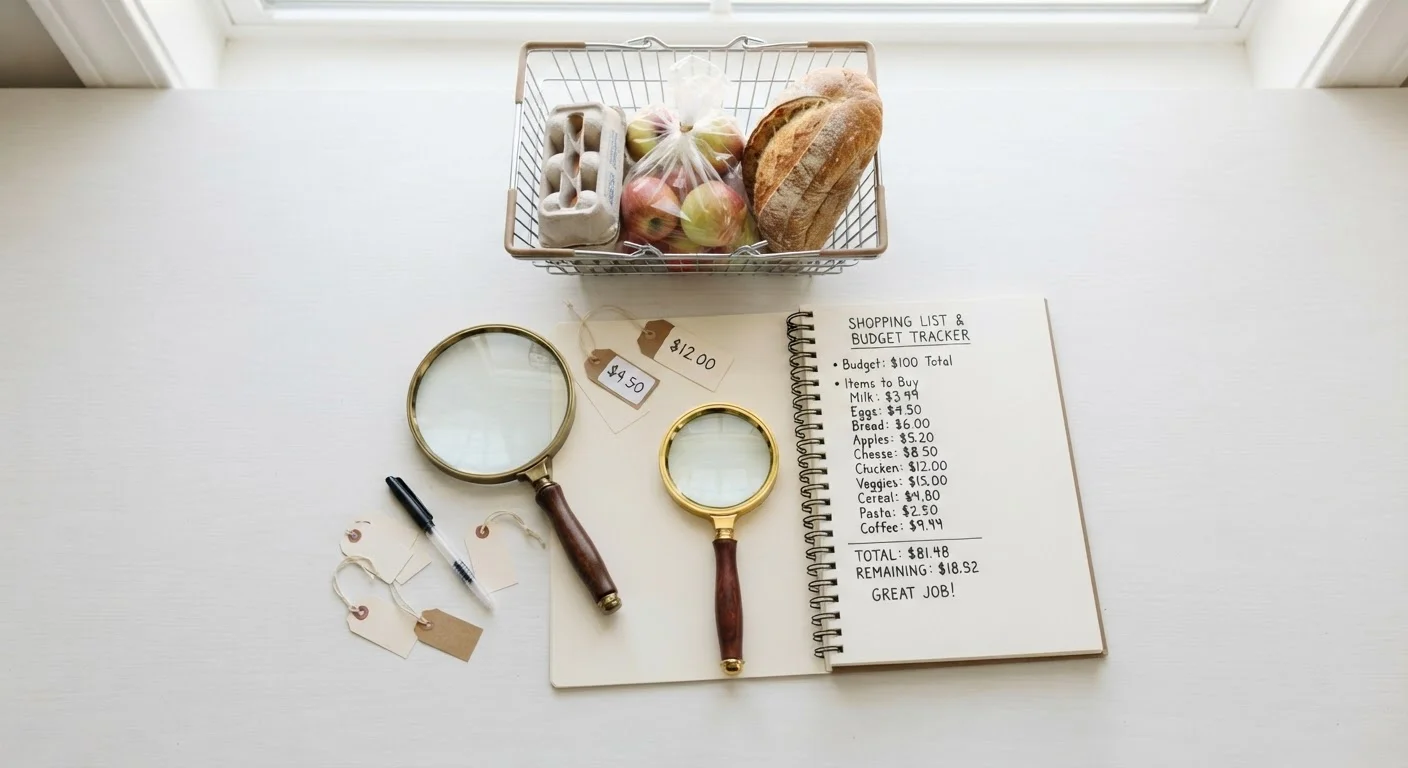 $4.50
$12.00
SHOPPING LIST &
BUDGET TRACKER
• Budget: $100 Total
• Items to Buy
Milk: $3.99
Eggs: $4.50
Bread: $6.00
Apples: $5.20
Chesse: $8.50
Chicken: $12.00
Veggies: $15.00
Cereal: $4.80
Pasta: $2.50
Coffee: $9.99
TOTAL: $81.48
REMAINING: $18.52
GREAT JOB!